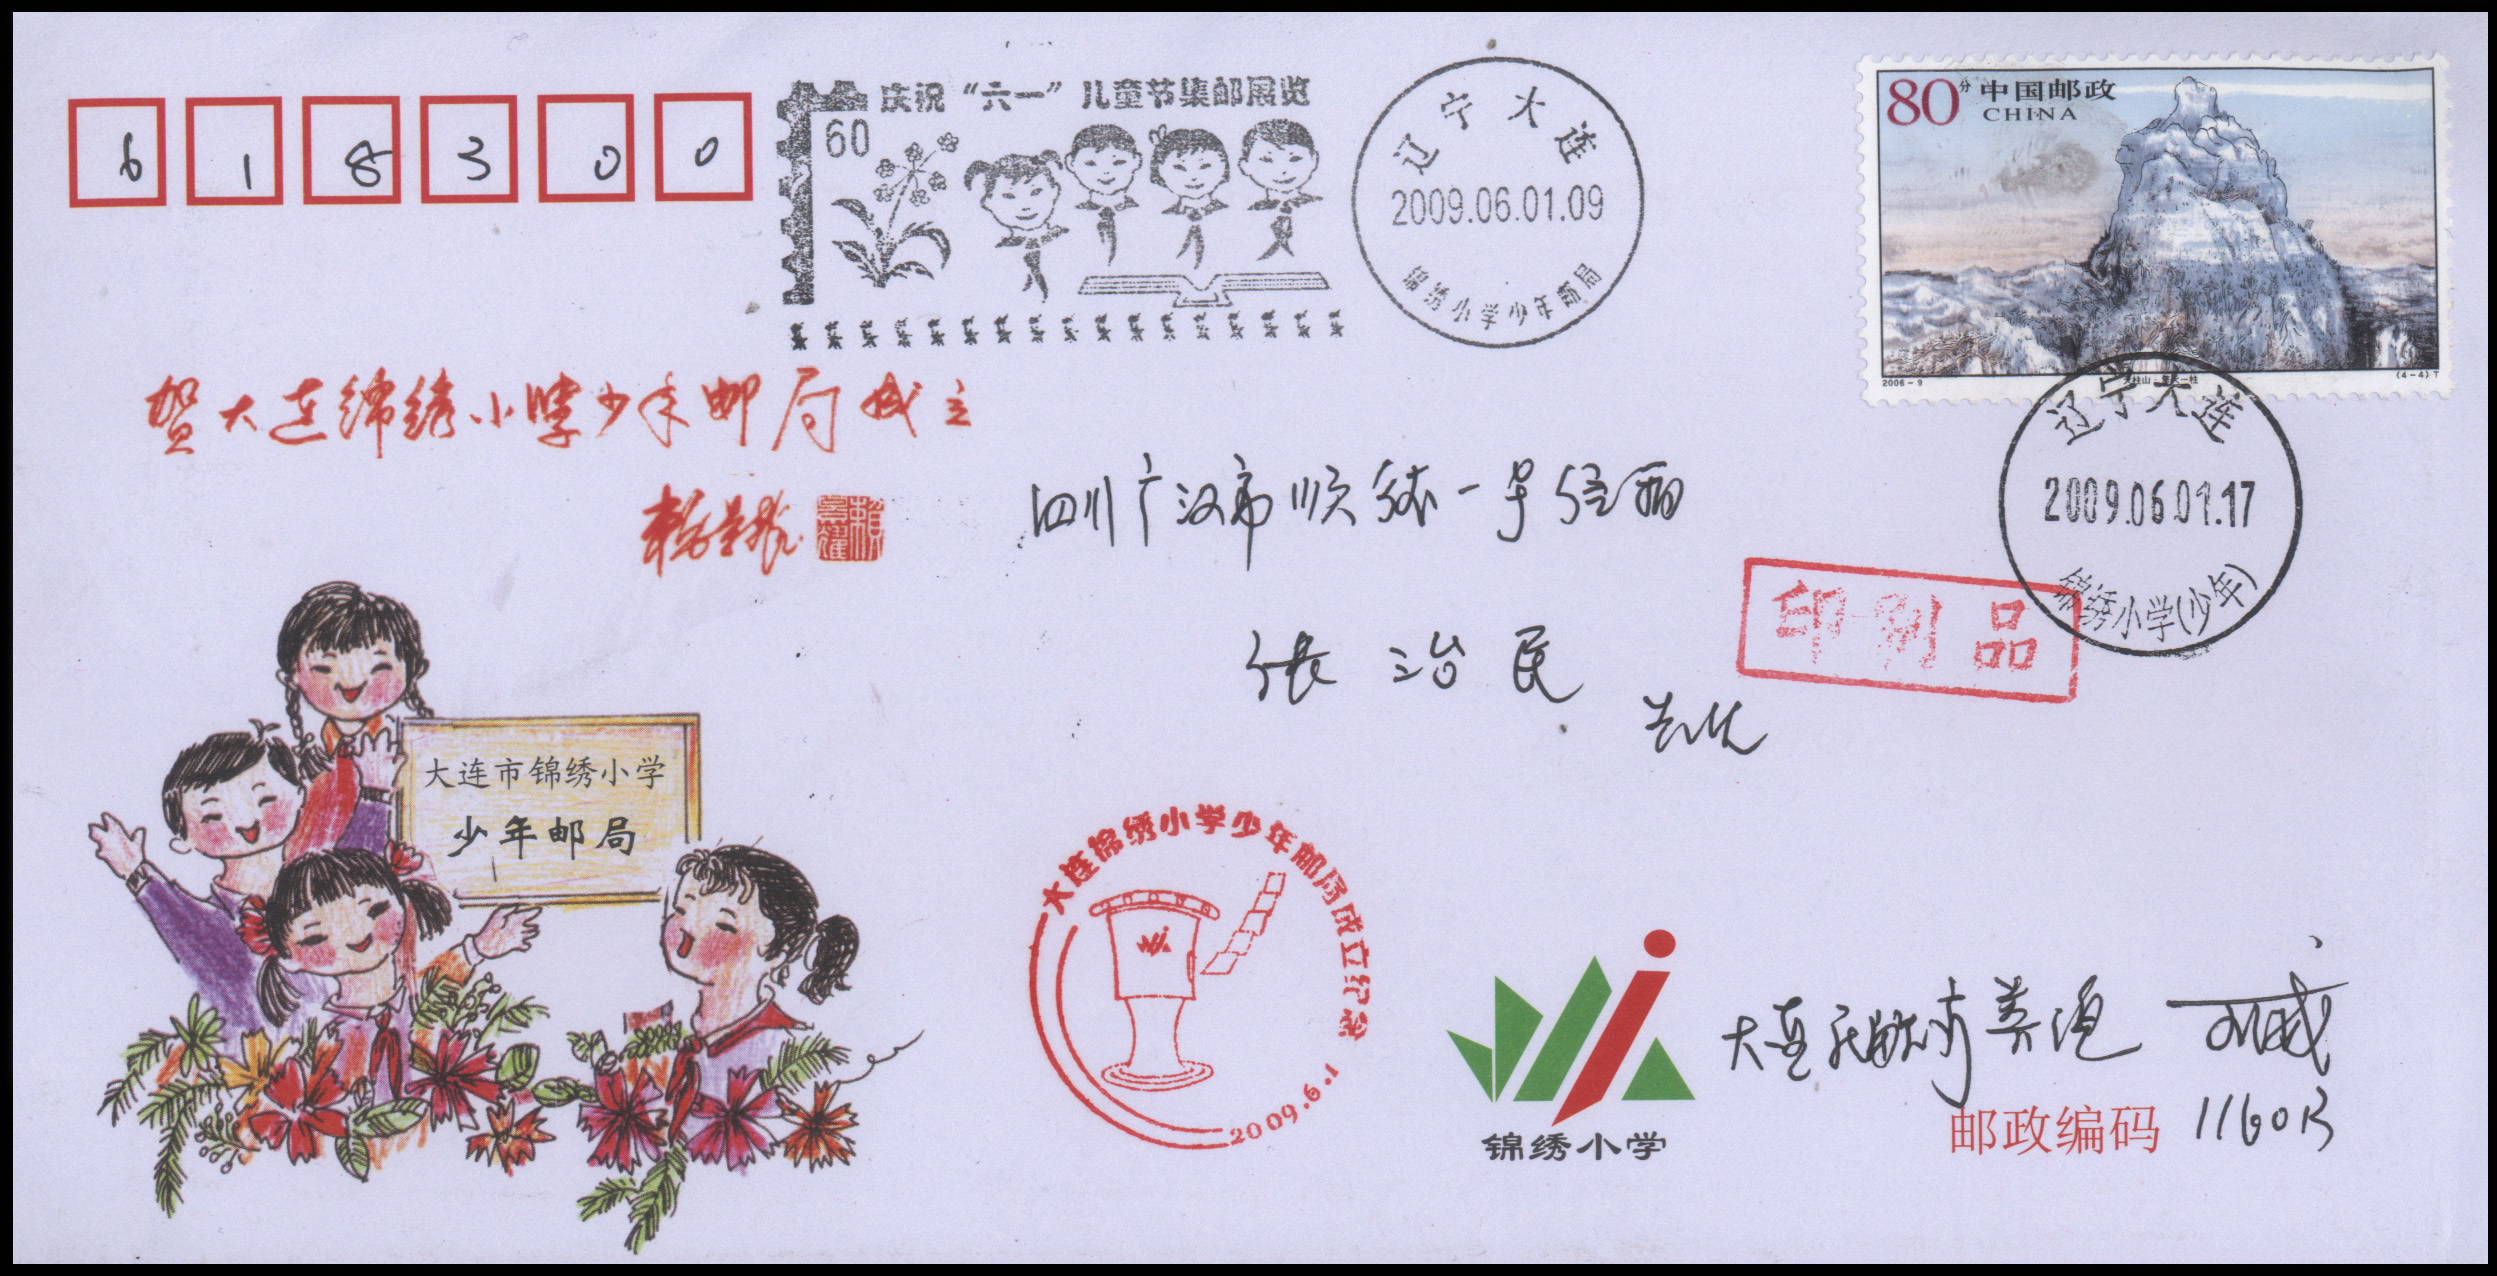 618300
庆祝“六一”儿童节集邮展览
60
辽宁大连
2009.06.01.09
锦绣小学少年邮局
80分 中国邮政
CHINA
2006-9
天柱山·擎天一柱
(4-4)T
辽宁大连
2009.06.01.17
锦绣小学(少年)
贺大连锦绣小学少年邮局成立
四川广汉市顺德一号
印刷品
张治民
大连市锦绣小学
少年邮局
大连锦绣小学少年邮局成立纪念
2009.6.1
锦绣小学
大连
邮政编码 116013